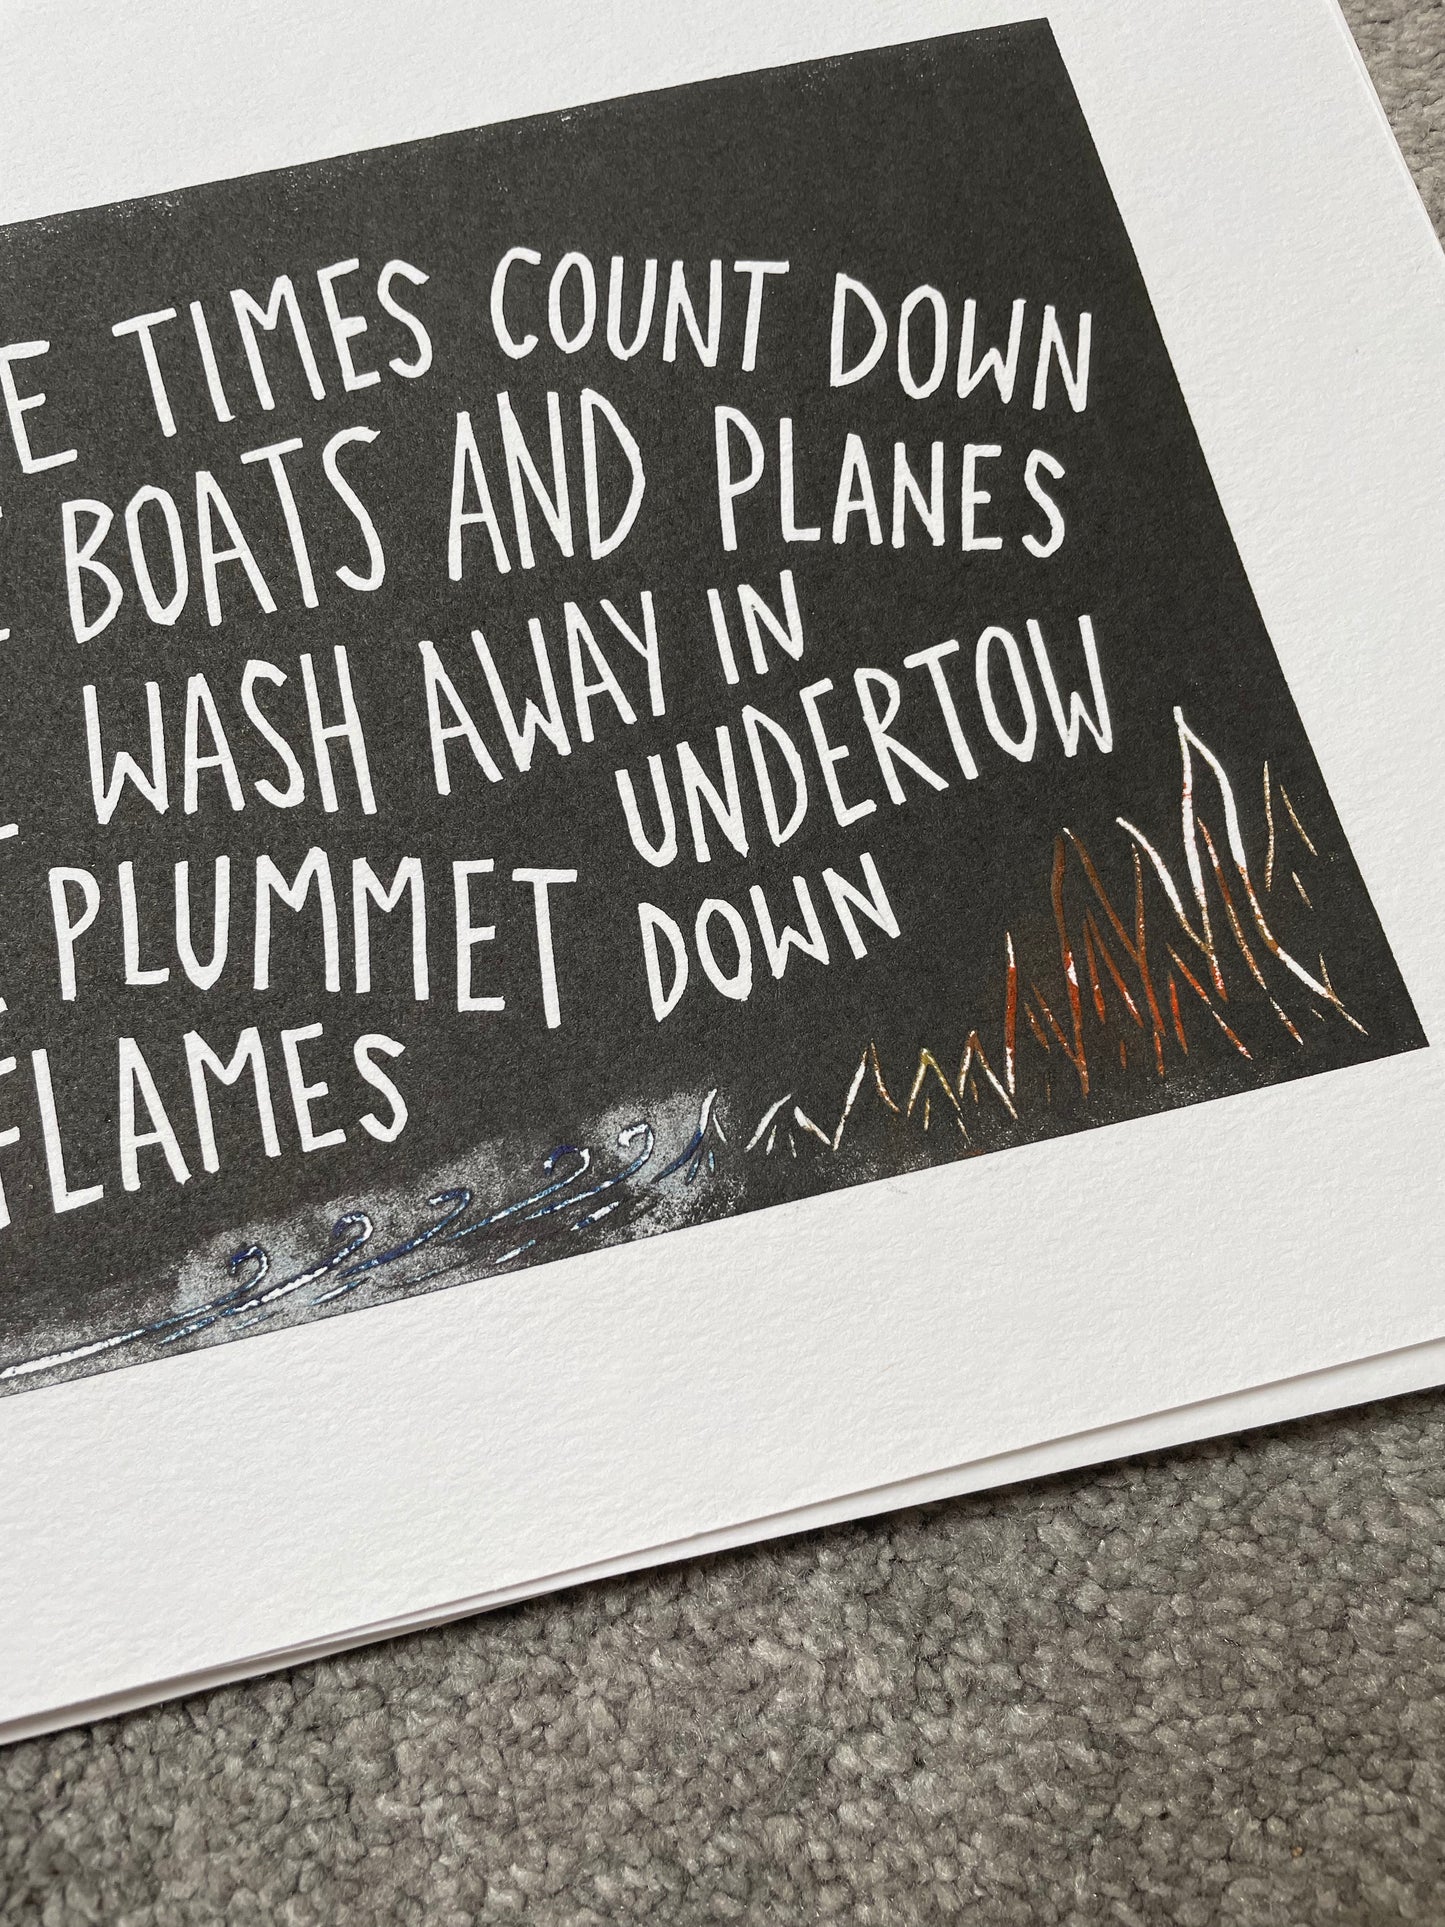 TIMES COUNT DOWN
BOATS AND PLANES
WASH AWAY IN
UNDERTOW
PLUMMET DOWN
FLAMES